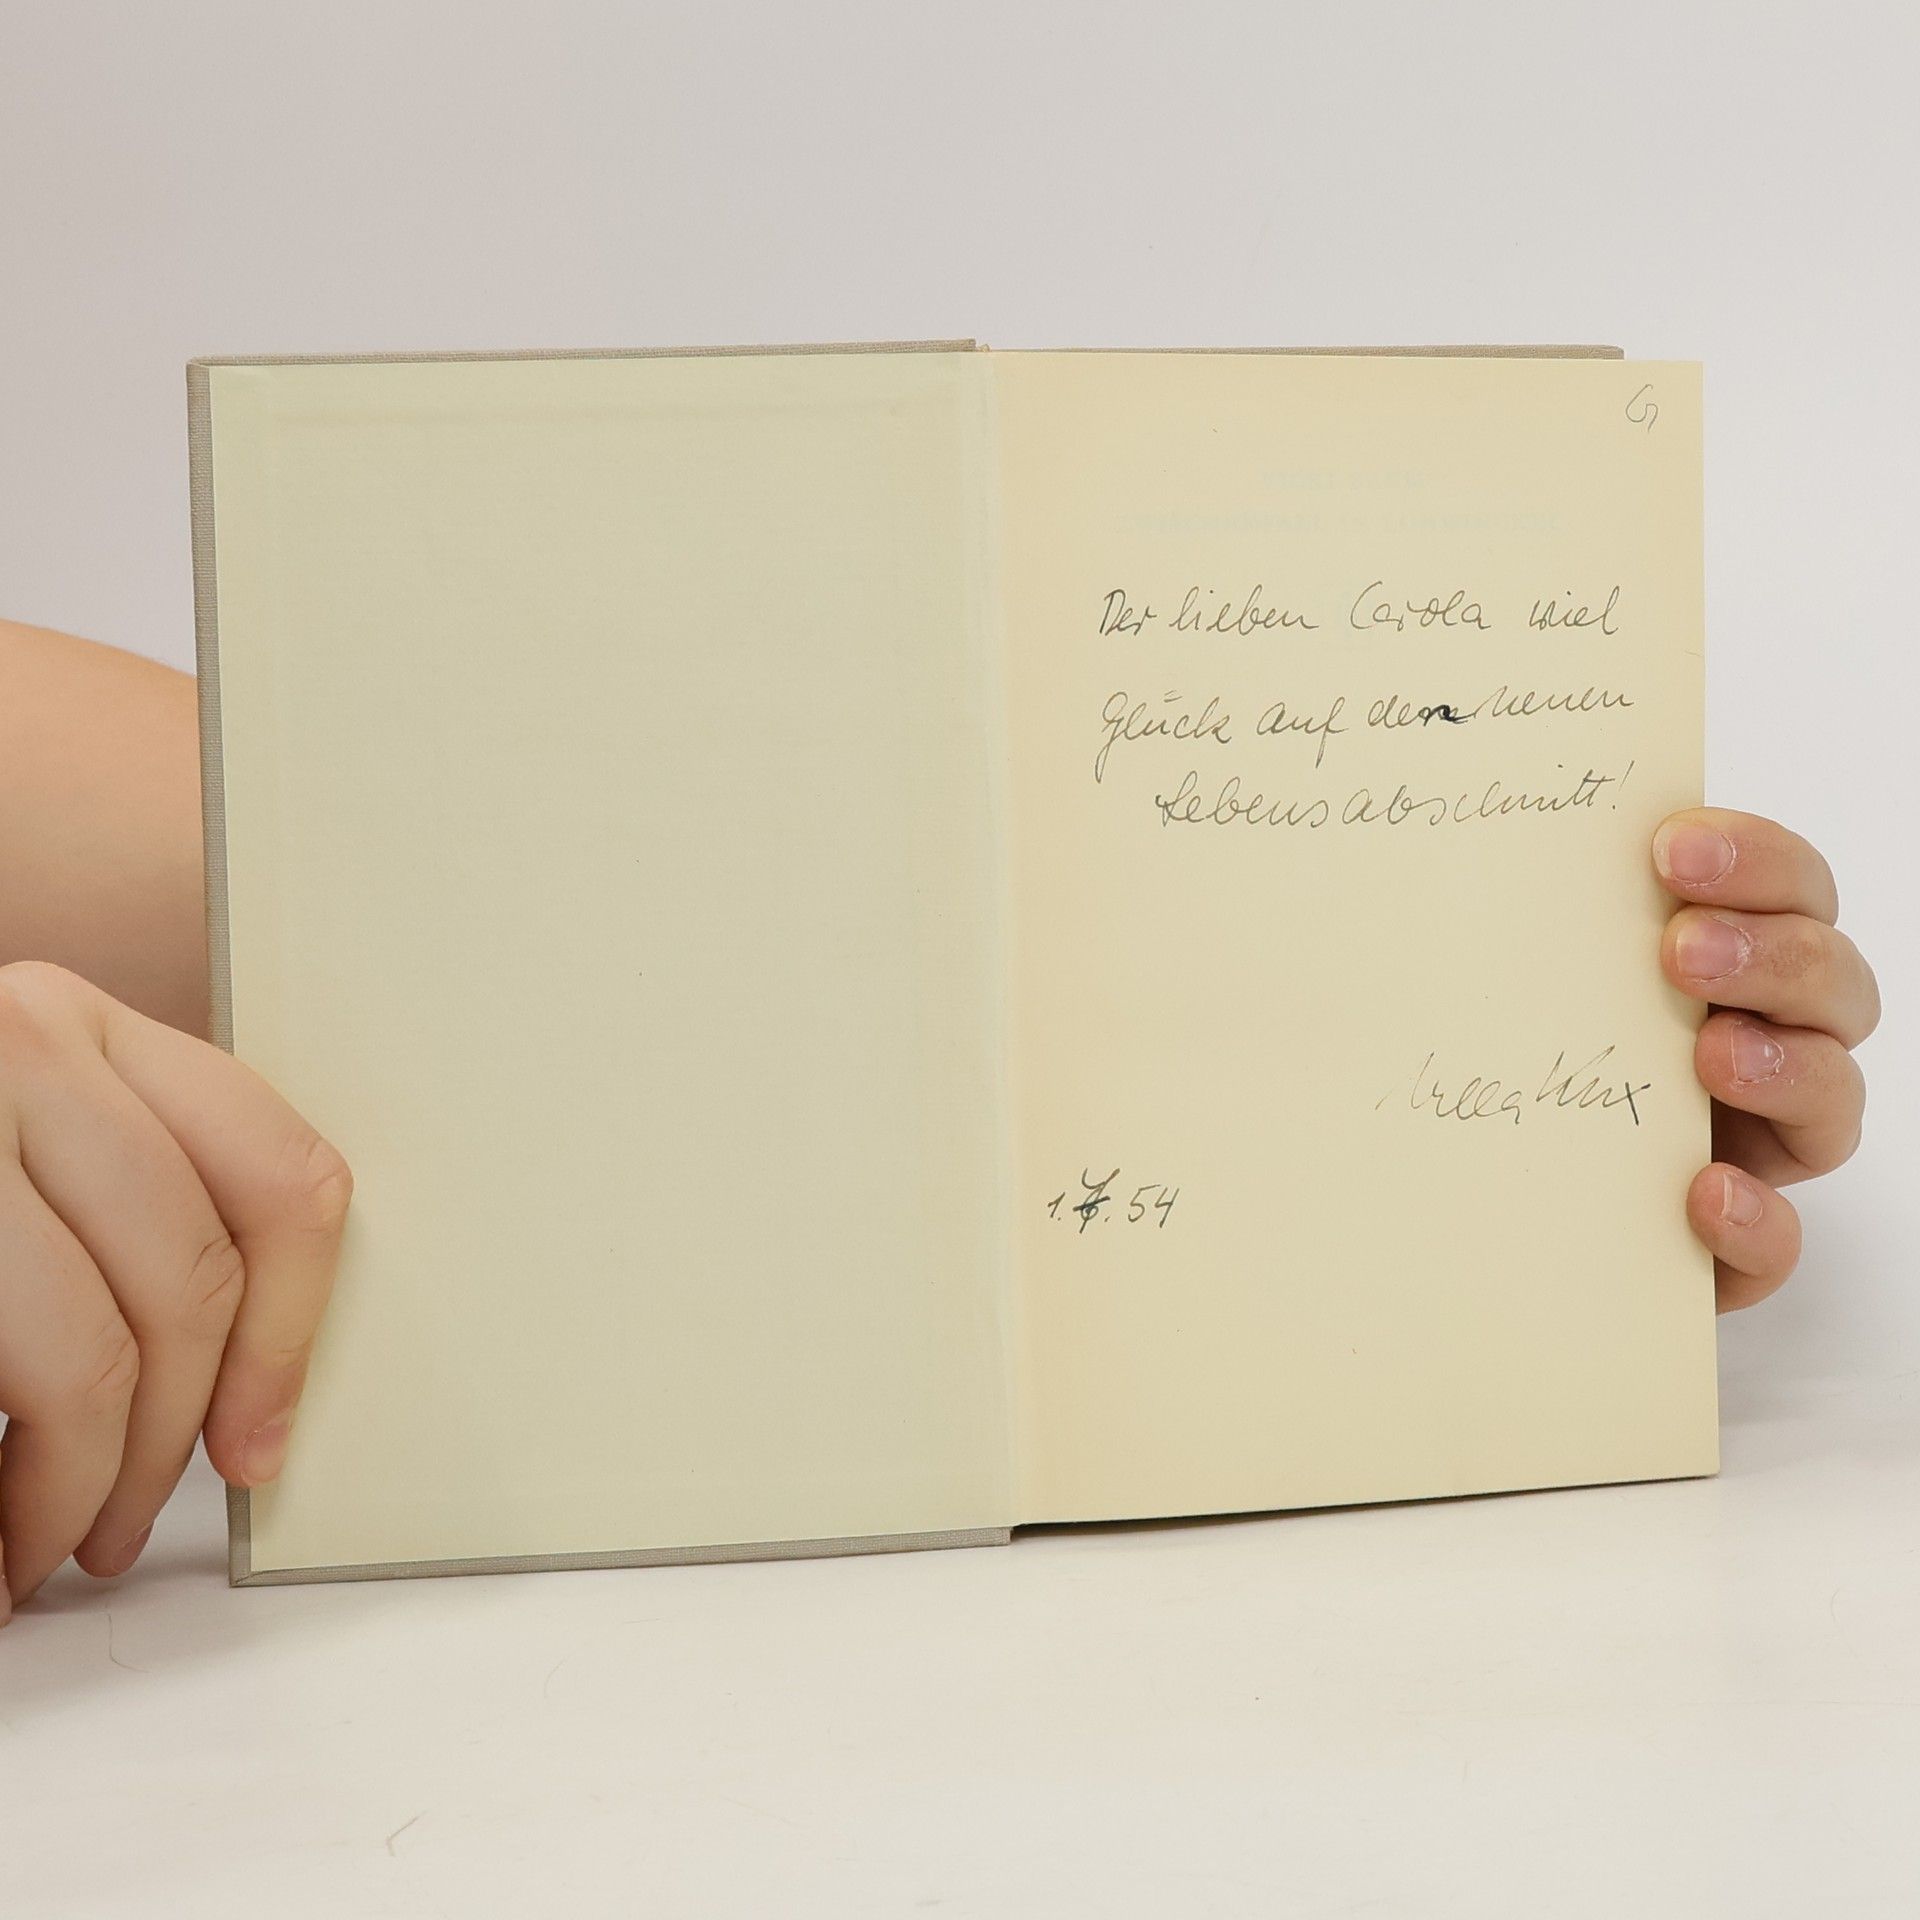 Der lieben Carola viel
Glück auf dem neuen
Lebensabschnitt!
1. 54